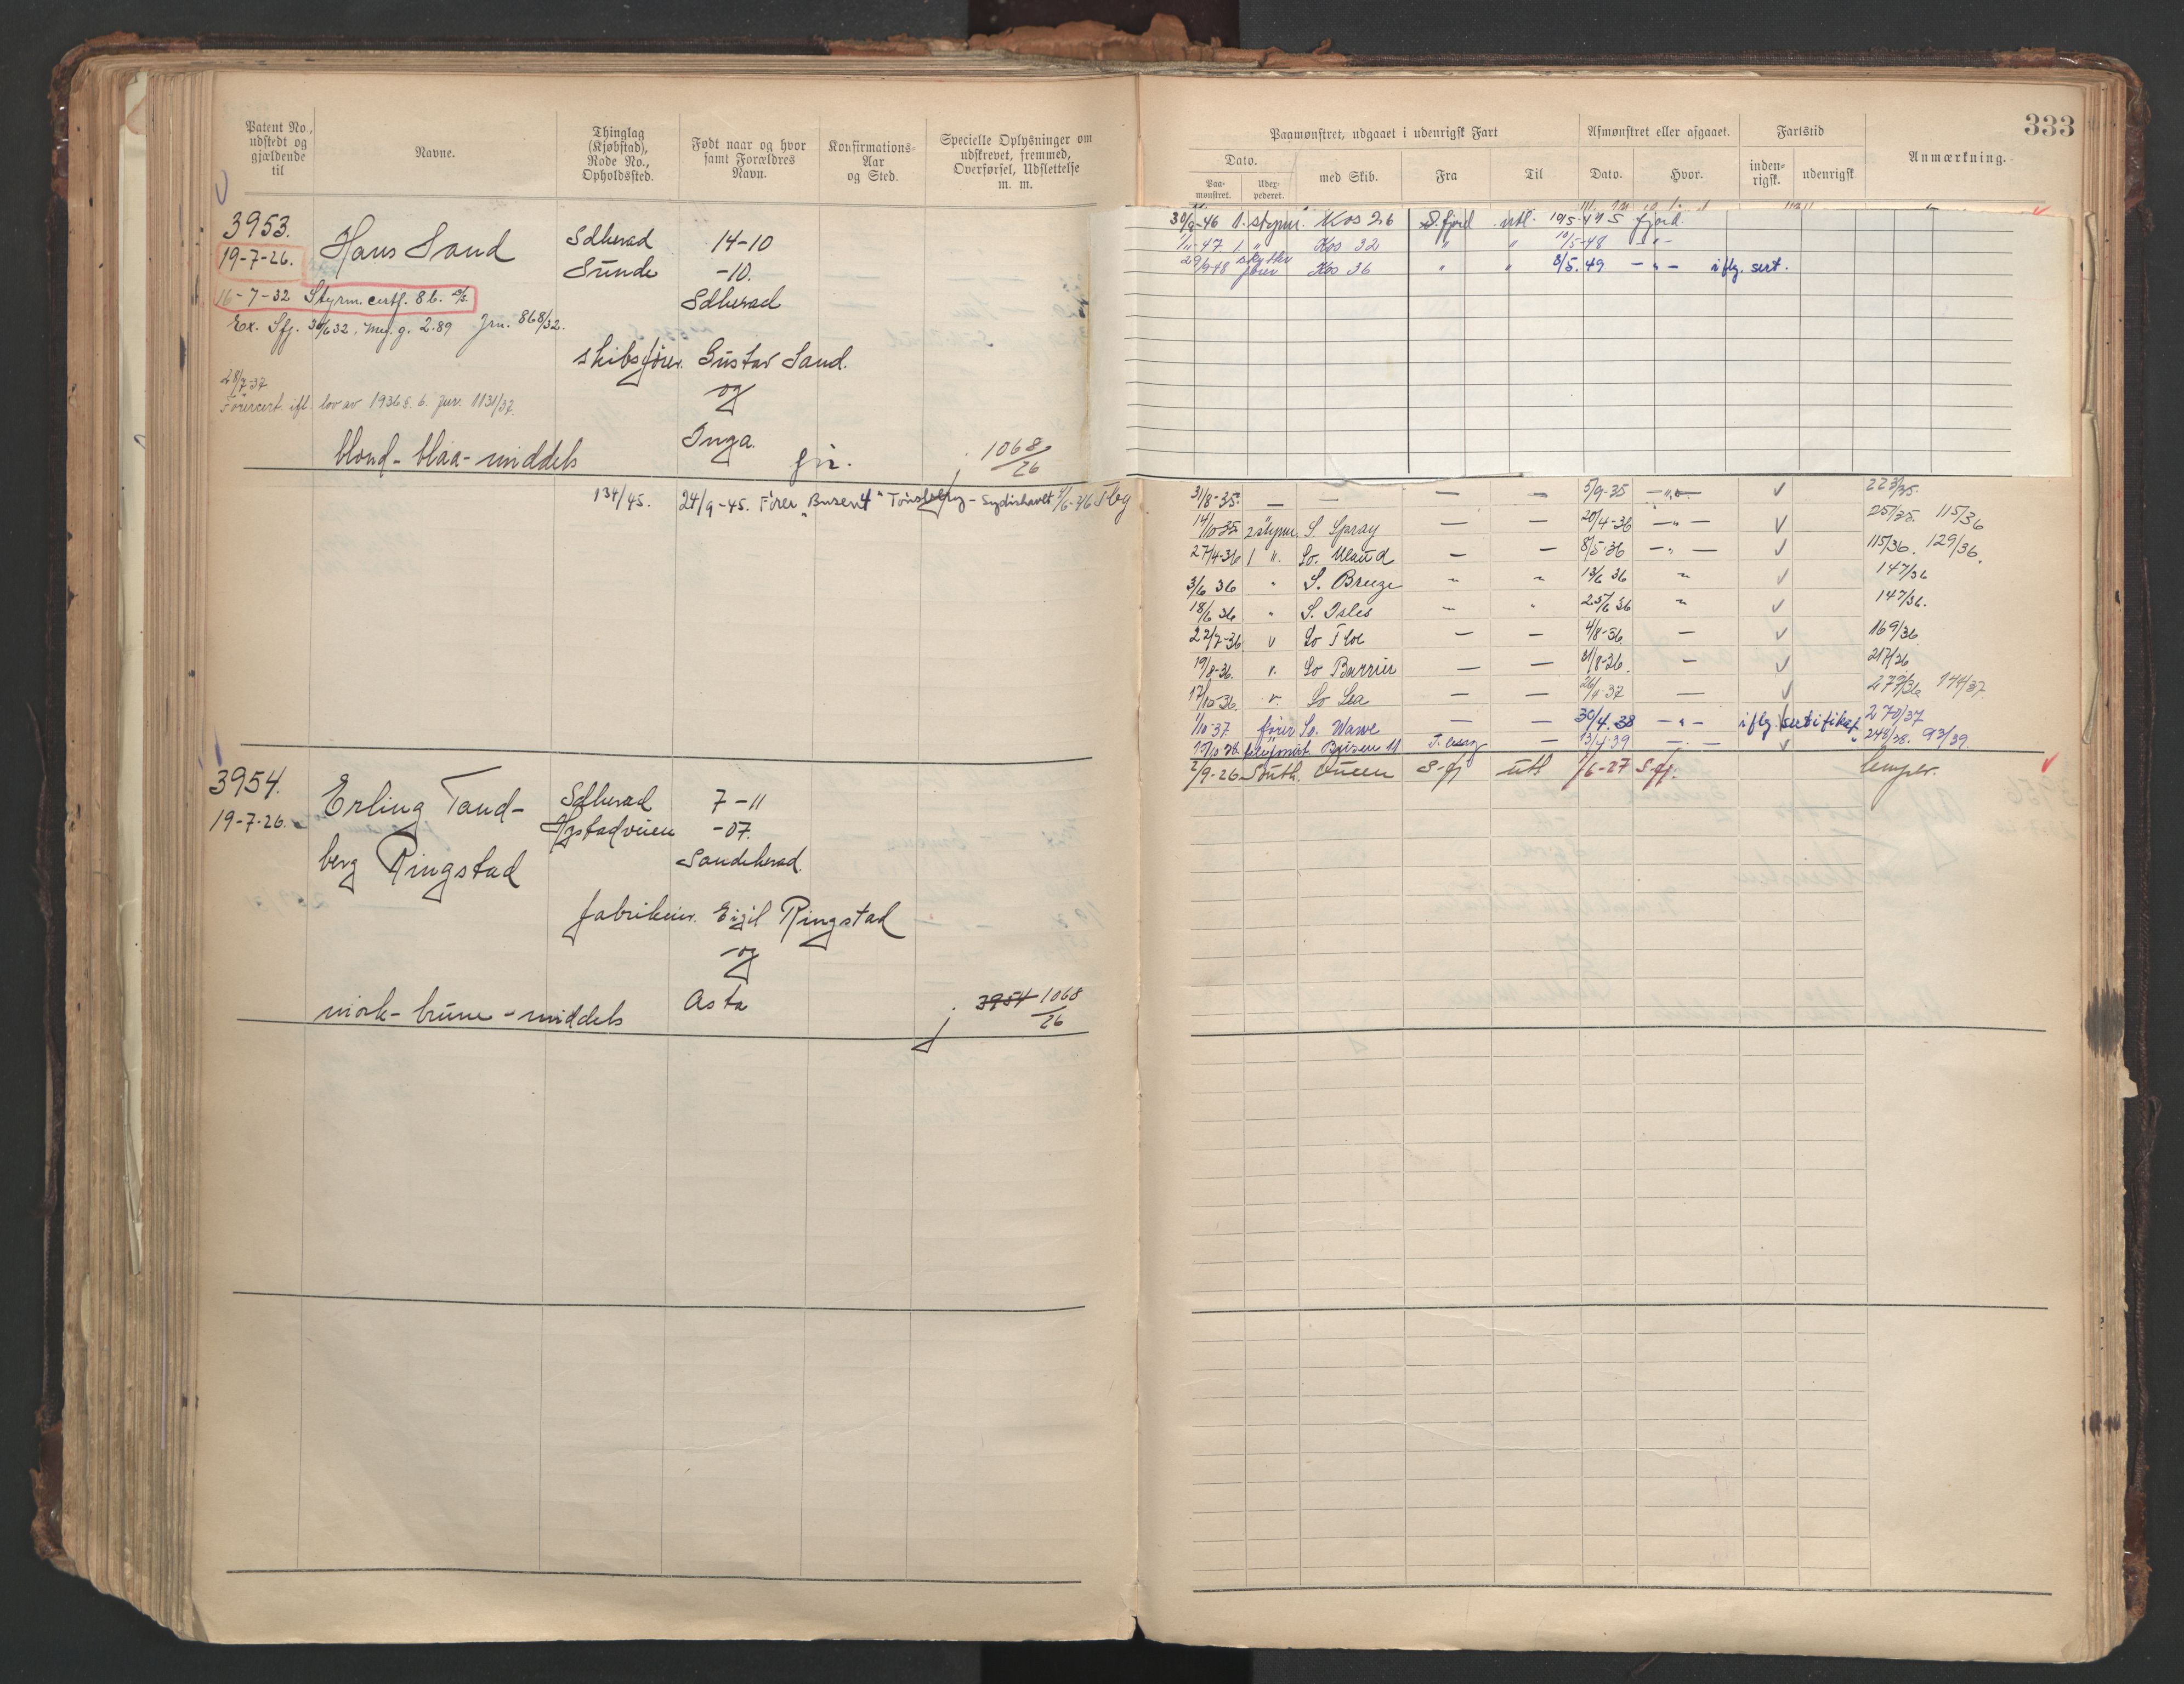 333
Patent No., udstedt og gjældende til
Navne.
Thinglag (Kjøbstad), Rode No., Opholdssted.
Født naar og hvor samt Forældres Navn.
Konfirmations-Aar og Sted.
Specielle Oplysninger om udskrevet, fremmed, Overførsel, Udslettelse m. m.
Paamønstret, udgaaet i udenrigsk Fart
Afmønstret eller afgaaet.
Fartstid
Anmærkning.
Dato.
Paa-mønstret.
med Skib.
Fra
Til
Dato.
Hvor.
inden-rigsk.
udenrigsk
3953.
19-7-26.
Hans Sand
Sdherad
Sunde
14-10
-10.
Sdherad
16-7-32 Styrm. certf. 8 b.
Ex. Sfj. 30/6 32. Meg. g. 2.89 Jrn. 868/32.
skibsfører Gustav Sand.
og
28/7-37
Førercert. ifl. lov av 1936 §. 6. Jur. 1131/37.
Inga.
blond - blaa - middels
1068/26
134/45. 24/9-45. Fører "Busen 4" Tønsberg - Sydishavet /6-46 Tbg
30/9-46 1. styrm. Kos 26 S.fjord utl. 10/5-47 S fjord.
1/11-47 1. " Kos 32 " " 10/5-48 - " -
29/9-48 skytter fører Kos 36 " " 8/5.49 - " - iflg. sert.
31/8-35. — — — — 5/9-35 - " - 223/35.
14/10-35 2 styrm. S. Spray — — 20/4-36 - " - 257/35. 115/36
27/4-36 1 ". So. Maud — — 8/5-36 - " - 115/36. 129/36.
3/6 36 " S. Breeze " " 13/6 36 " 147/36
18/6 36 " S. Isles " " 25/6 36 " 147/36.
22/7-36 " So Floe — — 4/8-36 — 169/36
19/8-36. " So Barrier — — 31/8-36. — 217/36
17/10-36. " So Sea — — 26/4-37 — 279/36 144/37
1/10-37. fører So. Wawe — — 30/4.38 - " - iflg. sertifikat 270/37
15/10 38 Busen 11 T.berg — 13/4-39 - " - 248/38. 93/39
3954.
19-7-26.
Erling Tand-
berg Ringstad
Sdherad
7-11
-07.
Sandeherad.
fabrikeier. Eigil Ringstad
og
Asta
mørk - brune - middels
3954 1068/26
2/9-26 South. Queen S-fj utl. 1/6-27 S-fj.